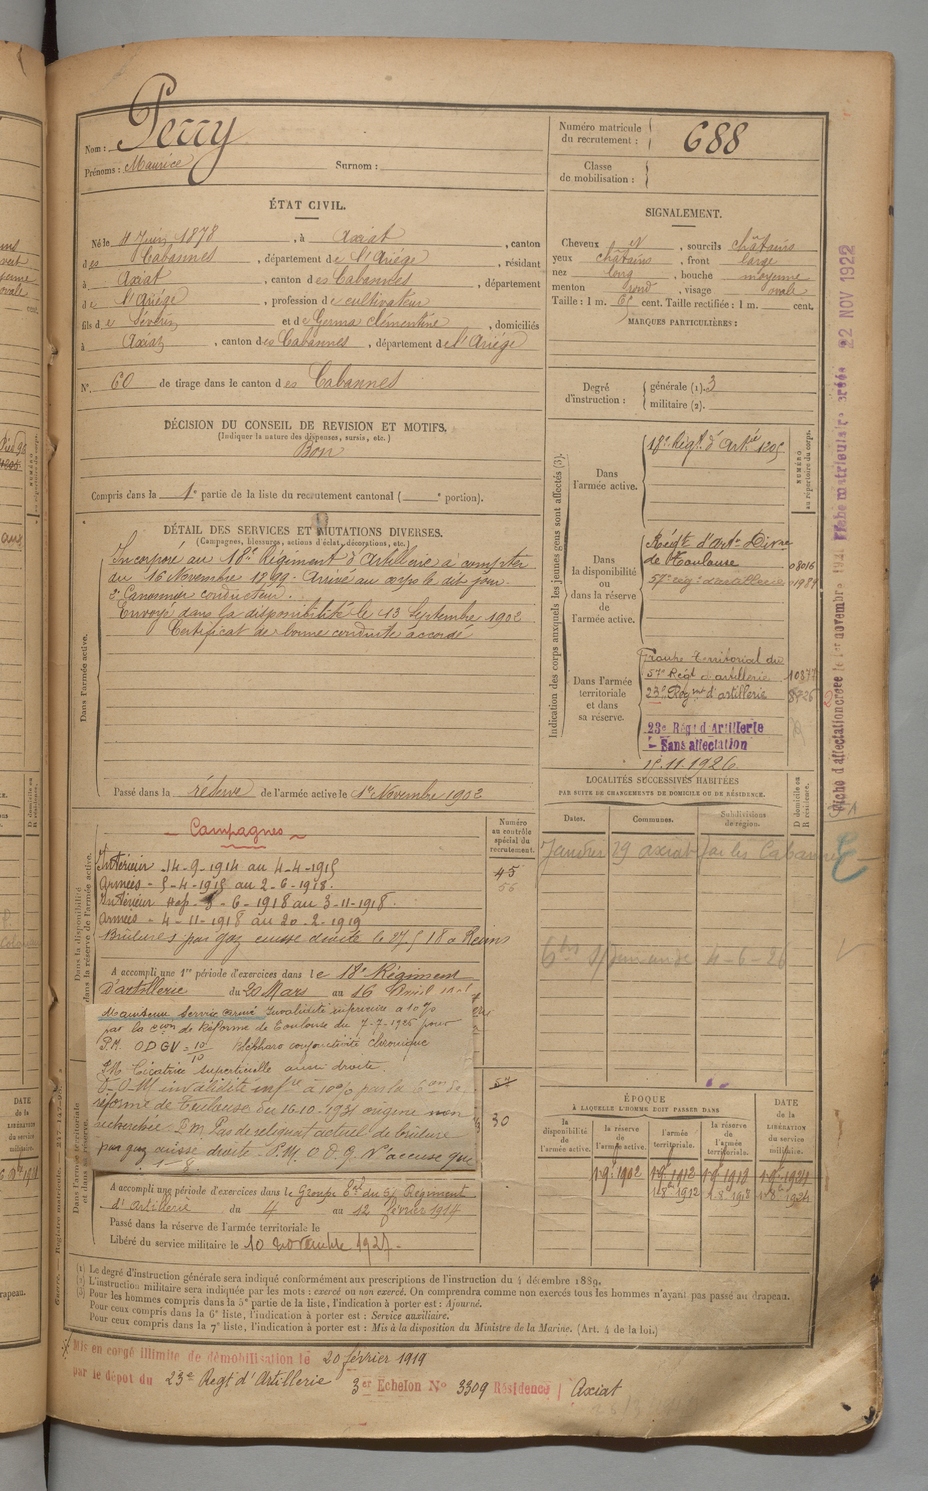 Nom : Perry
Prénoms : Maurice Surnom :
Numéro matricule du recrutement : 688
Classe de mobilisation :
ÉTAT CIVIL.
Né le 11 Juin 1878, à Axiat, canton
des Cabannes, département de l'Ariège, résidant
à Axiat, canton des Cabannes, département
de l'Ariège, profession de cultivateur
fils de Séverin et de Germa Clémentine, domiciliés
à Axiat, canton des Cabannes, département de l'Ariège
N° 60 de tirage dans le canton des Cabannes
SIGNALEMENT.
Cheveux N, sourcils châtains
yeux châtains, front large
nez long, bouche moyenne
menton rond, visage ovale
Taille : 1 m. 65 cent. Taille rectifiée : 1 m. cent.
MARQUES PARTICULIÈRES :
Degré d'instruction : générale (1). 3
militaire (2).
DÉCISION DU CONSEIL DE REVISION ET MOTIFS.
(Indiquer la nature des dispenses, sursis, etc.)
Bon
Compris dans la 1e partie de la liste du recrutement cantonal ( e portion).
DÉTAIL DES SERVICES ET MUTATIONS DIVERSES.
(Campagnes, blessures, actions d'éclat, décorations, etc.)
Dans l'armée active.
Incorporé au 18e Régiment d'Artillerie à compter
du 16 Novembre 1899. Arrivé au corps le dit jour.
2e Canonnier conducteur.
Envoyé dans la disponibilité le 13 Septembre 1902
Certificat de bonne conduite accordé
Passé dans la réserve de l'armée active le 1er Novembre 1902
Indication des corps auxquels les jeunes gens sont affectés (3).
NUMÉRO au répertoire du corps.
Dans l'armée active.
18e Régt d'Artie 1205
Dans la disponibilité ou dans la réserve de l'armée active.
Régt d'Artie
de Toulouse 08016
57e rég d'artillerie 1984
Dans l'armée territoriale et dans sa réserve.
Groupe territorial du
57e Régt d'artillerie 10877
23e Régnt d'artillerie
23e Régt d'Artillerie
Sans affectation
15.11.1926
22 NOV 1922
LOCALITÉS SUCCESSIVES HABITÉES
PAR SUITE DE CHANGEMENTS DE DOMICILE OU DE RÉSIDENCE.
Dates. Communes. Subdivisions de région. D domicile ou R résidence.
Janvier 29 axiat par les Cabannes
4-6-26
Dans la disponibilité dans la réserve de l'armée active.
Numéro au contrôle spécial du recrutement.
Campagnes
Intérieur 14-9-1914 au 4-4-1915
Armées - 5-4-1915 au 2-6-1918.
Intérieur 3-6-1918 au 3-11-1918.
Armées - 4-11-1918 au 20-2-1919
Brûlures par gaz cuisse droite le 27 5 18 à Reims
45
A accompli une 1re période d'exercices dans le 18e Régiment
d'artillerie du 20 Mars au 16 Avril
Maintenu Service armé Invalidité inférieure à 10%
par la con de Réforme de Toulouse du 7-7-1925 pour
P.M. ODGV = 10/10 Blépharo conjonctivite chronique
P.M. Cicatrice superficielle
O-O-M invalidité infre à 10% par la 6e on de
réforme de Toulouse du 16-10-1931 origine non
recherchée P.M. Pas de reliquat actuel de brûlure
par gaz cuisse droite - P.M. O D G N'accuse que
30
A accompli une période d'exercices dans le Groupe du 57 Régiment
d'Artillerie du 4 au 12 février 1914
Passé dans la réserve de l'armée territoriale le
Libéré du service militaire le 10 novembre 1927.
ÉPOQUE
À LAQUELLE L'HOMME DOIT PASSER DANS
la disponibilité de l'armée active.
la réserve de l'armée active.
l'armée territoriale.
la réserve de l'armée territoriale.
DATE de la LIBÉRATION du service militaire.
1 9 1902 1 9 1912 1 9 1918 1 9 1924
1 8bre 1912 1 8e 1918 1 8e 1924
(1) Le degré d'instruction générale sera indiqué conformément aux prescriptions de l'instruction du 4 décembre 1889.
(2) L'instruction militaire sera indiquée par les mots : exercé ou non exercé. On comprendra comme non exercés tous les hommes n'ayant pas passé au drapeau.
(3) Pour les hommes compris dans la 5e partie de la liste, l'indication à porter est : Ajourné.
Pour ceux compris dans la 6e liste, l'indication à porter est : Service auxiliaire.
Pour ceux compris dans la 7e liste, l'indication à porter est : Mis à la disposition du Ministre de la Marine. (Art. 4 de la loi.)
Mis en congé illimité de démobilisation le 20 février 1919
par le dépôt du 23e Regt d'Artillerie 3er Echelon No 3309 Résidence Axiat